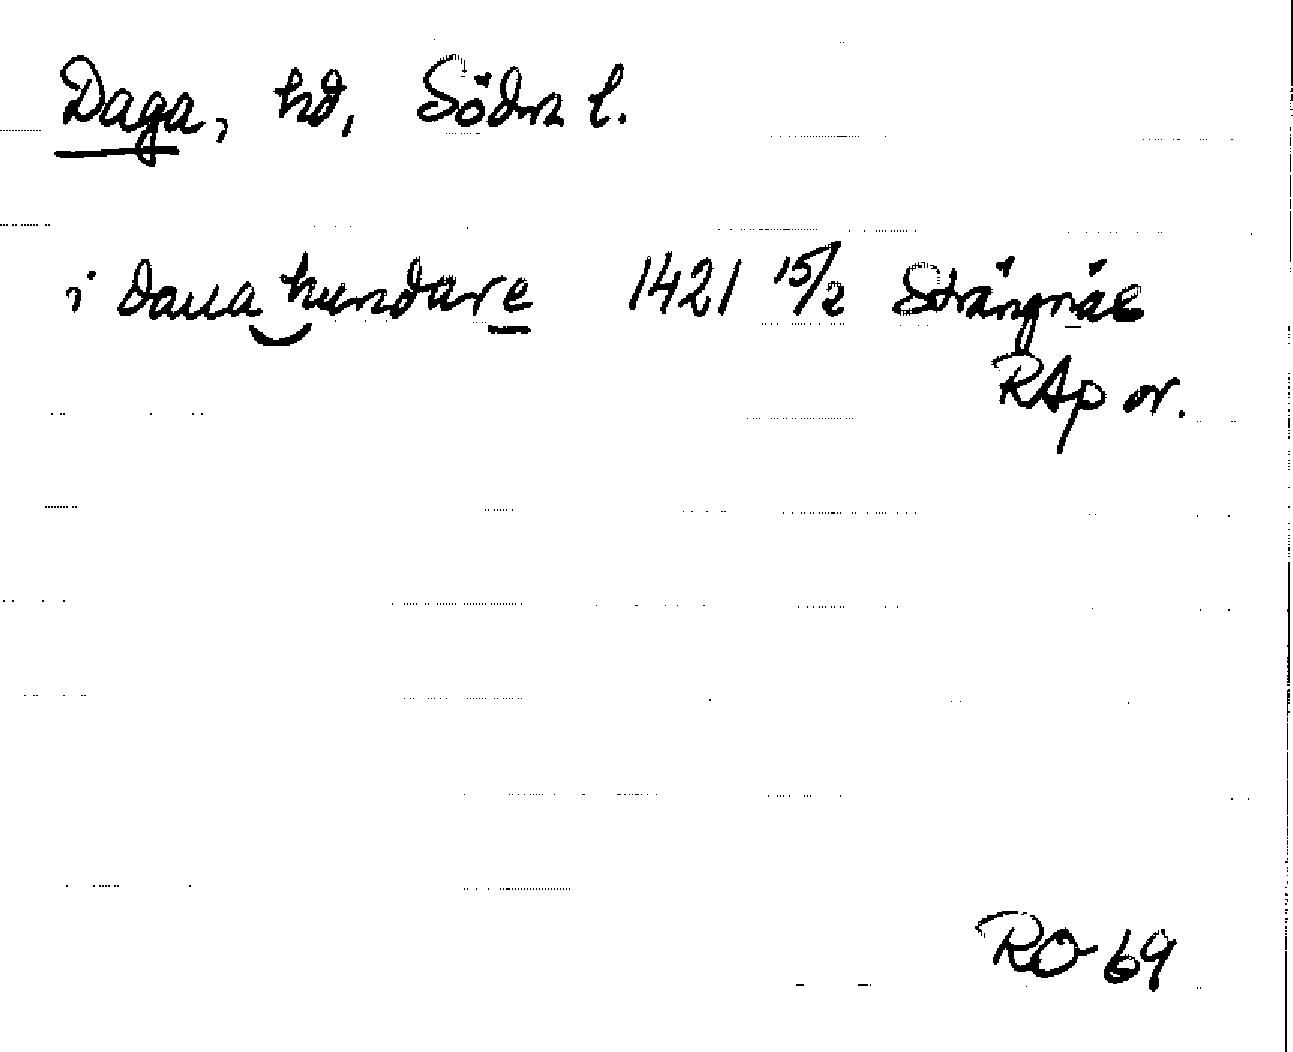 Daga, hd, Söderm l.
i daua hundare 1421 15/2 Strängnäs
RAp or.
RO 69